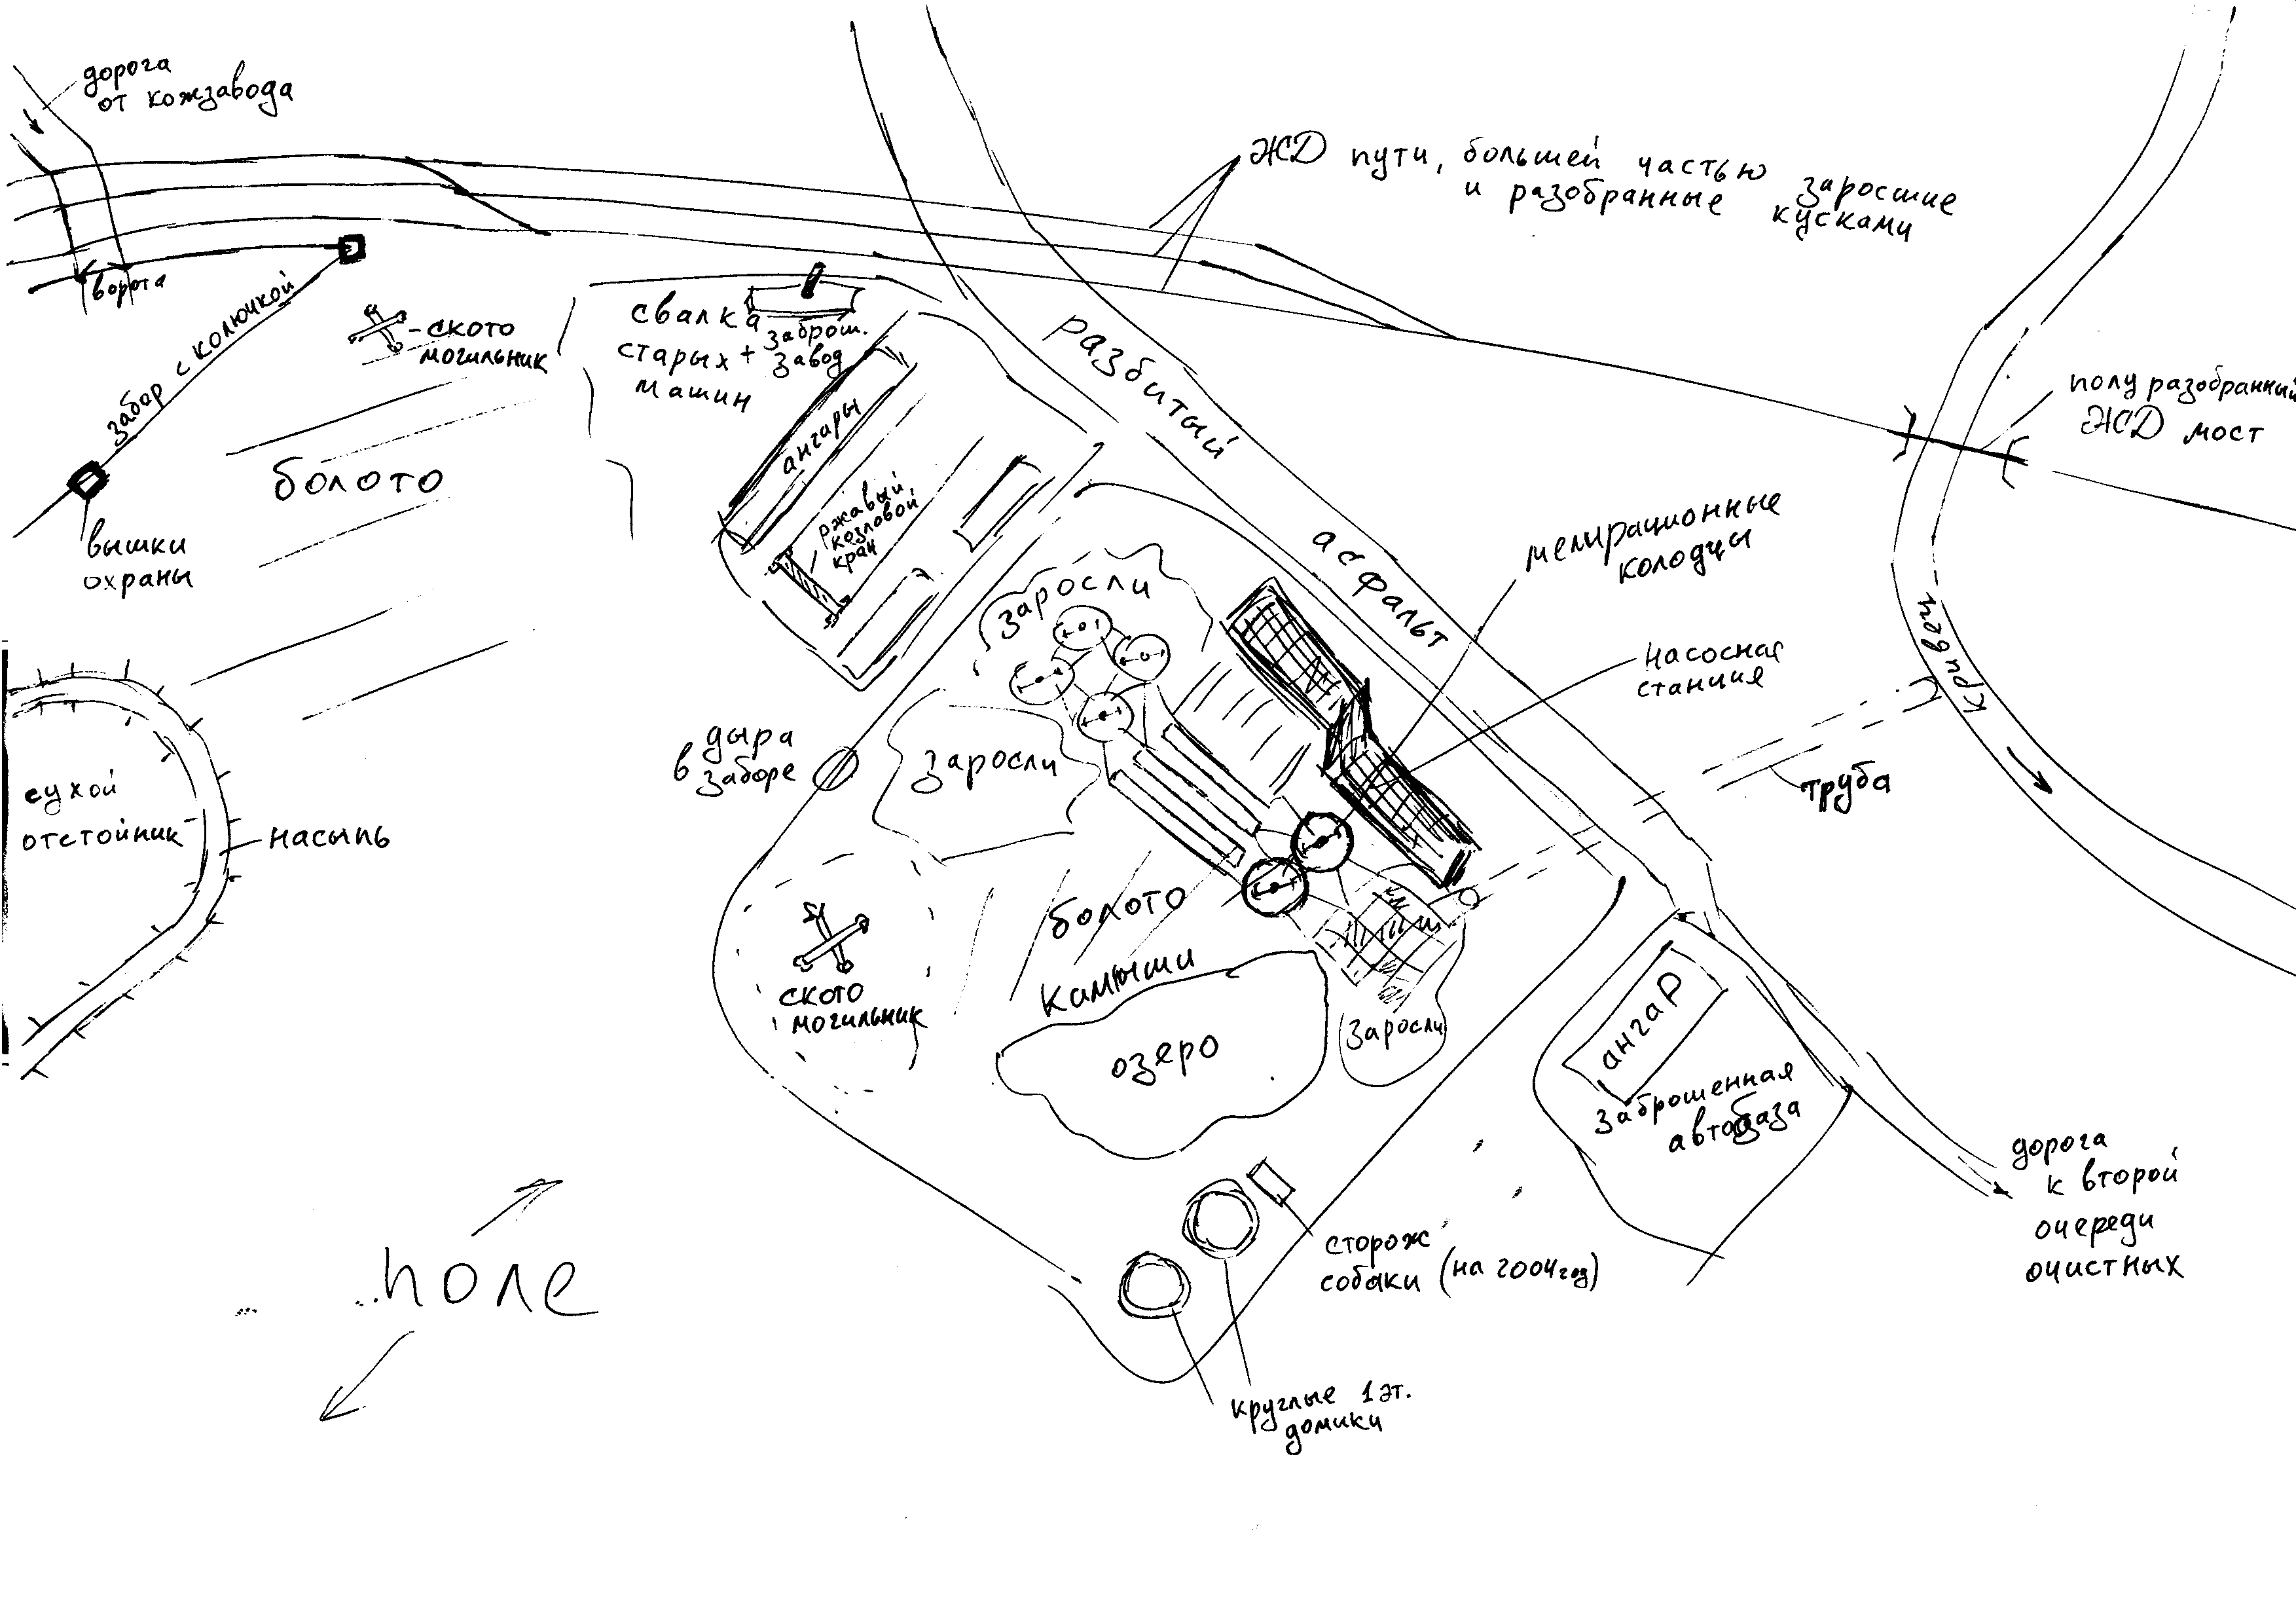 дорога
от кожзавода
ЖД пути, большей частью заросшие
и разобранные кусками
ворота
забор с колючкой
ското
могильник
свалка
старых +
машин
заброш.
завод
ангары
ржавый
козловой
кран
разбитый
асфальт
полуразобранный
ЖД мост
болото
вышки
охраны
мелирационные
колодцы
насосная
станция
криведь
труба
заросли
заросли
дыра
в заборе
сухой
отстойник
насыпь
болото
камыши
ското
могильник
озеро
заросли
ангар
заброшенная
автобаза
дорога
к второй
очереди
очистных
поле
сторож
собаки (на 2004 год)
круглые 1 эт.
домики